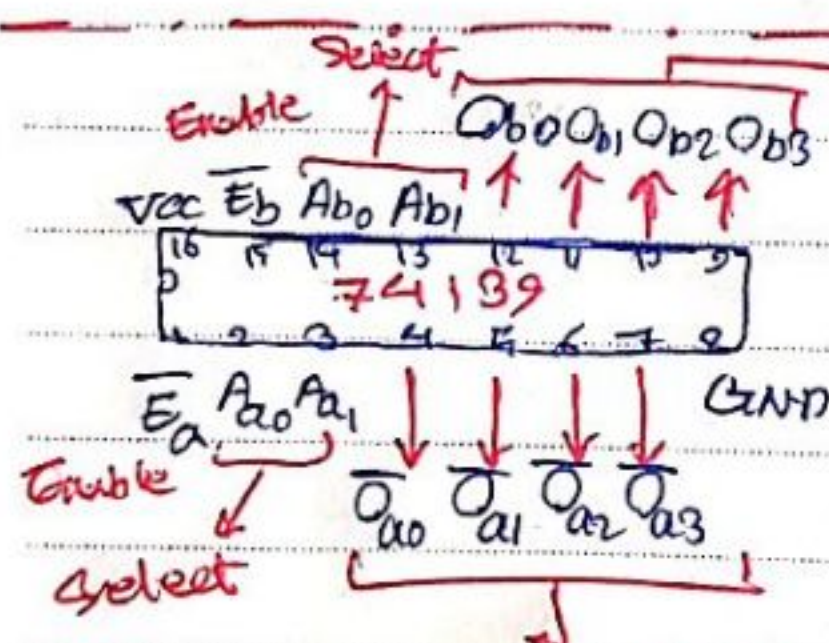 Select
Enable O̅b0 Ob1 Ob2 Ob3
VCC E̅b Ab0 Ab1
16 15 14 13 12 11 10 9
74139
1 2 3 4 5 6 7 8
E̅a Aa0 Aa1 GND
Enable O̅a0 O̅a1 O̅a2 O̅a3
Select